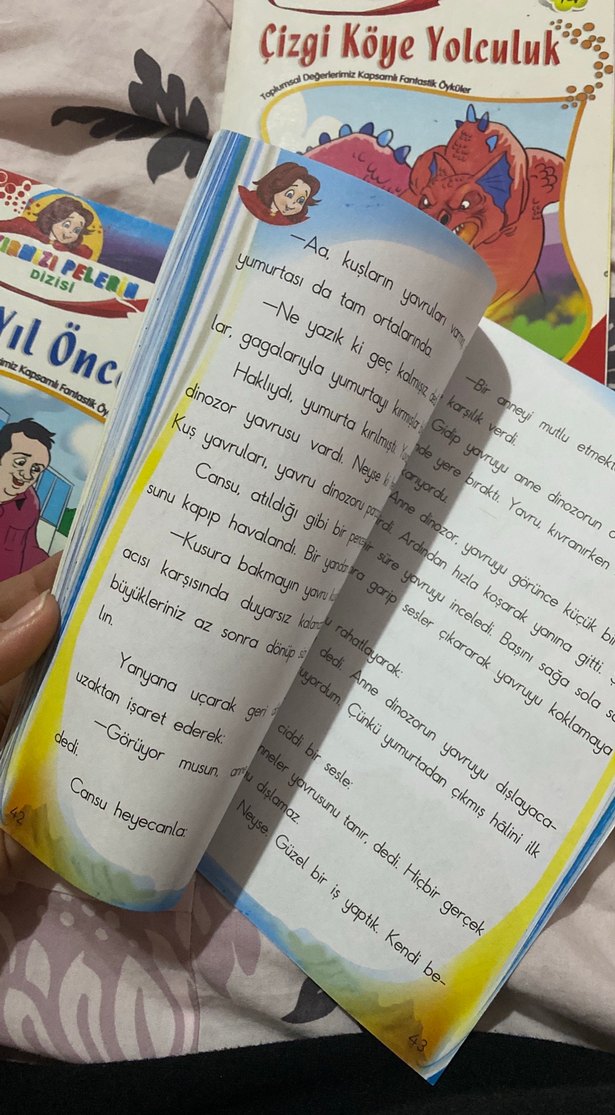 Çizgi Köye Yolculuk
Toplumsal Değerlerimiz Kapsamlı Fantastik Öyküler
PELERİN
DİZİSİ
Yıl Önc
Kapsamlı Fantastik Öy
—Aa, kuşların yavruları
yumurtası da tam ortalarında.
—Ne yazık ki geç kalmışız,
lar, gagalarıyla yumurtayı
Haklıydı, yumurta kırılmıştı.
dinozor yavrusu vardı. Neyse
Kuş yavruları, yavru dinozoru
Cansu, atıldığı gibi bir
sunu kapıp havalandı. Bir
—Kusura bakmayın yavru
acısı karşısında duyarsız
büyükleriniz az sonra dönüp
lın.
Yanyana uçarak geri
uzaktan işaret ederek:
—Görüyor musun,
dedi.
Cansu heyecanla:
42
—Bir anneyi mutlu
karşılık verdi.
Gidip yavruyu anne dinozorun
yere bıraktı. Yavru, kıvranırken
Anne dinozor, yavruyu görünce küçük
Ardından hızla koşarak yanına gitti.
süre yavruyu inceledi. Başını sağa sola
garip sesler çıkararak yavruyu koklamaya
rahatlayarak:
dedi. Anne dinozorun yavruyu dışlayaca-
Çünkü yumurtadan çıkmış hâlini ilk
ciddi bir sesle:
yavrusunu tanır, dedi. Hiçbir gerçek
dışlamaz.
Neyse. Güzel bir iş yaptık. Kendi be-
43